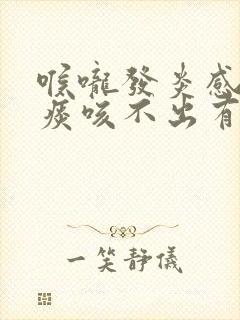 喉嚨發炎感
痰咳不出有
一笑靜儀